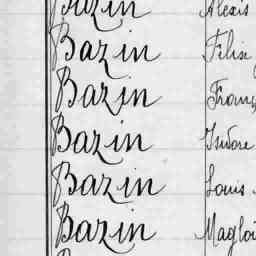 Bazin Alexis
Bazin Félix
Bazin Franç
Bazin Isidore
Bazin Louis
Bazin Magloi